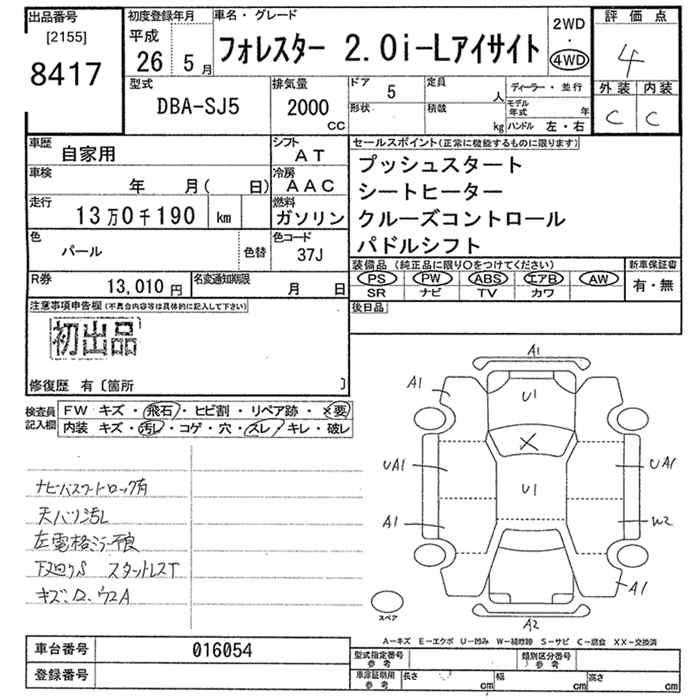 出品番号
[2155]
8417
初度登録年月
平成
26 5月
車名・グレード
フォレスター 2.0i-Lアイサイト
2WD
4WD
評価点
4
外装 内装
C C
型式
DBA-SJ5
排気量
2000
CC
ドア
5
定員
人
形状
積載
kg
ディーラー・並行
モデル年式 年
ハンドル 左・右
車歴
自家用
シフト
AT
車検
年 月( 日)
冷房
AAC
走行
13万0千190 km
燃料
ガソリン
色
パール
色替
色コード
37J
R券
13,010円
名変通知期限
月 日
セールスポイント(正常に機能するものに限ります)
プッシュスタート
シートヒーター
クルーズコントロール
パドルシフト
装備品 (純正品に限り○をつけてください)
PS PW ABS エアB AW
SR ナビ TV カワ
新車保証書
有・無
後日品
注意事項申告欄(不具合内容等は具体的に記入して下さい)
初出品
修復歴 有〔箇所 〕
検査員記入欄
FW キズ・飛石・ヒビ割・リペア跡・×要
内装 キズ・汚レ・コゲ・穴・スレ・キレ・破レ
ナビパスワードロック有
天バリ汚レ
左電格ミラー不良
下廻りS スタットレスT
A1
A1
U1
X
UA1
UA1
U1
A1
W2
A1
A2
スペア
A−キズ E−エクボ U−凹み W−補修跡 S−サビ C−腐食 XX−交換済
車台番号
016054
登録番号
型式指定番号
参考
類別区分番号
参考
車庫証明用
参考
長さ cm
幅 cm
高さ cm